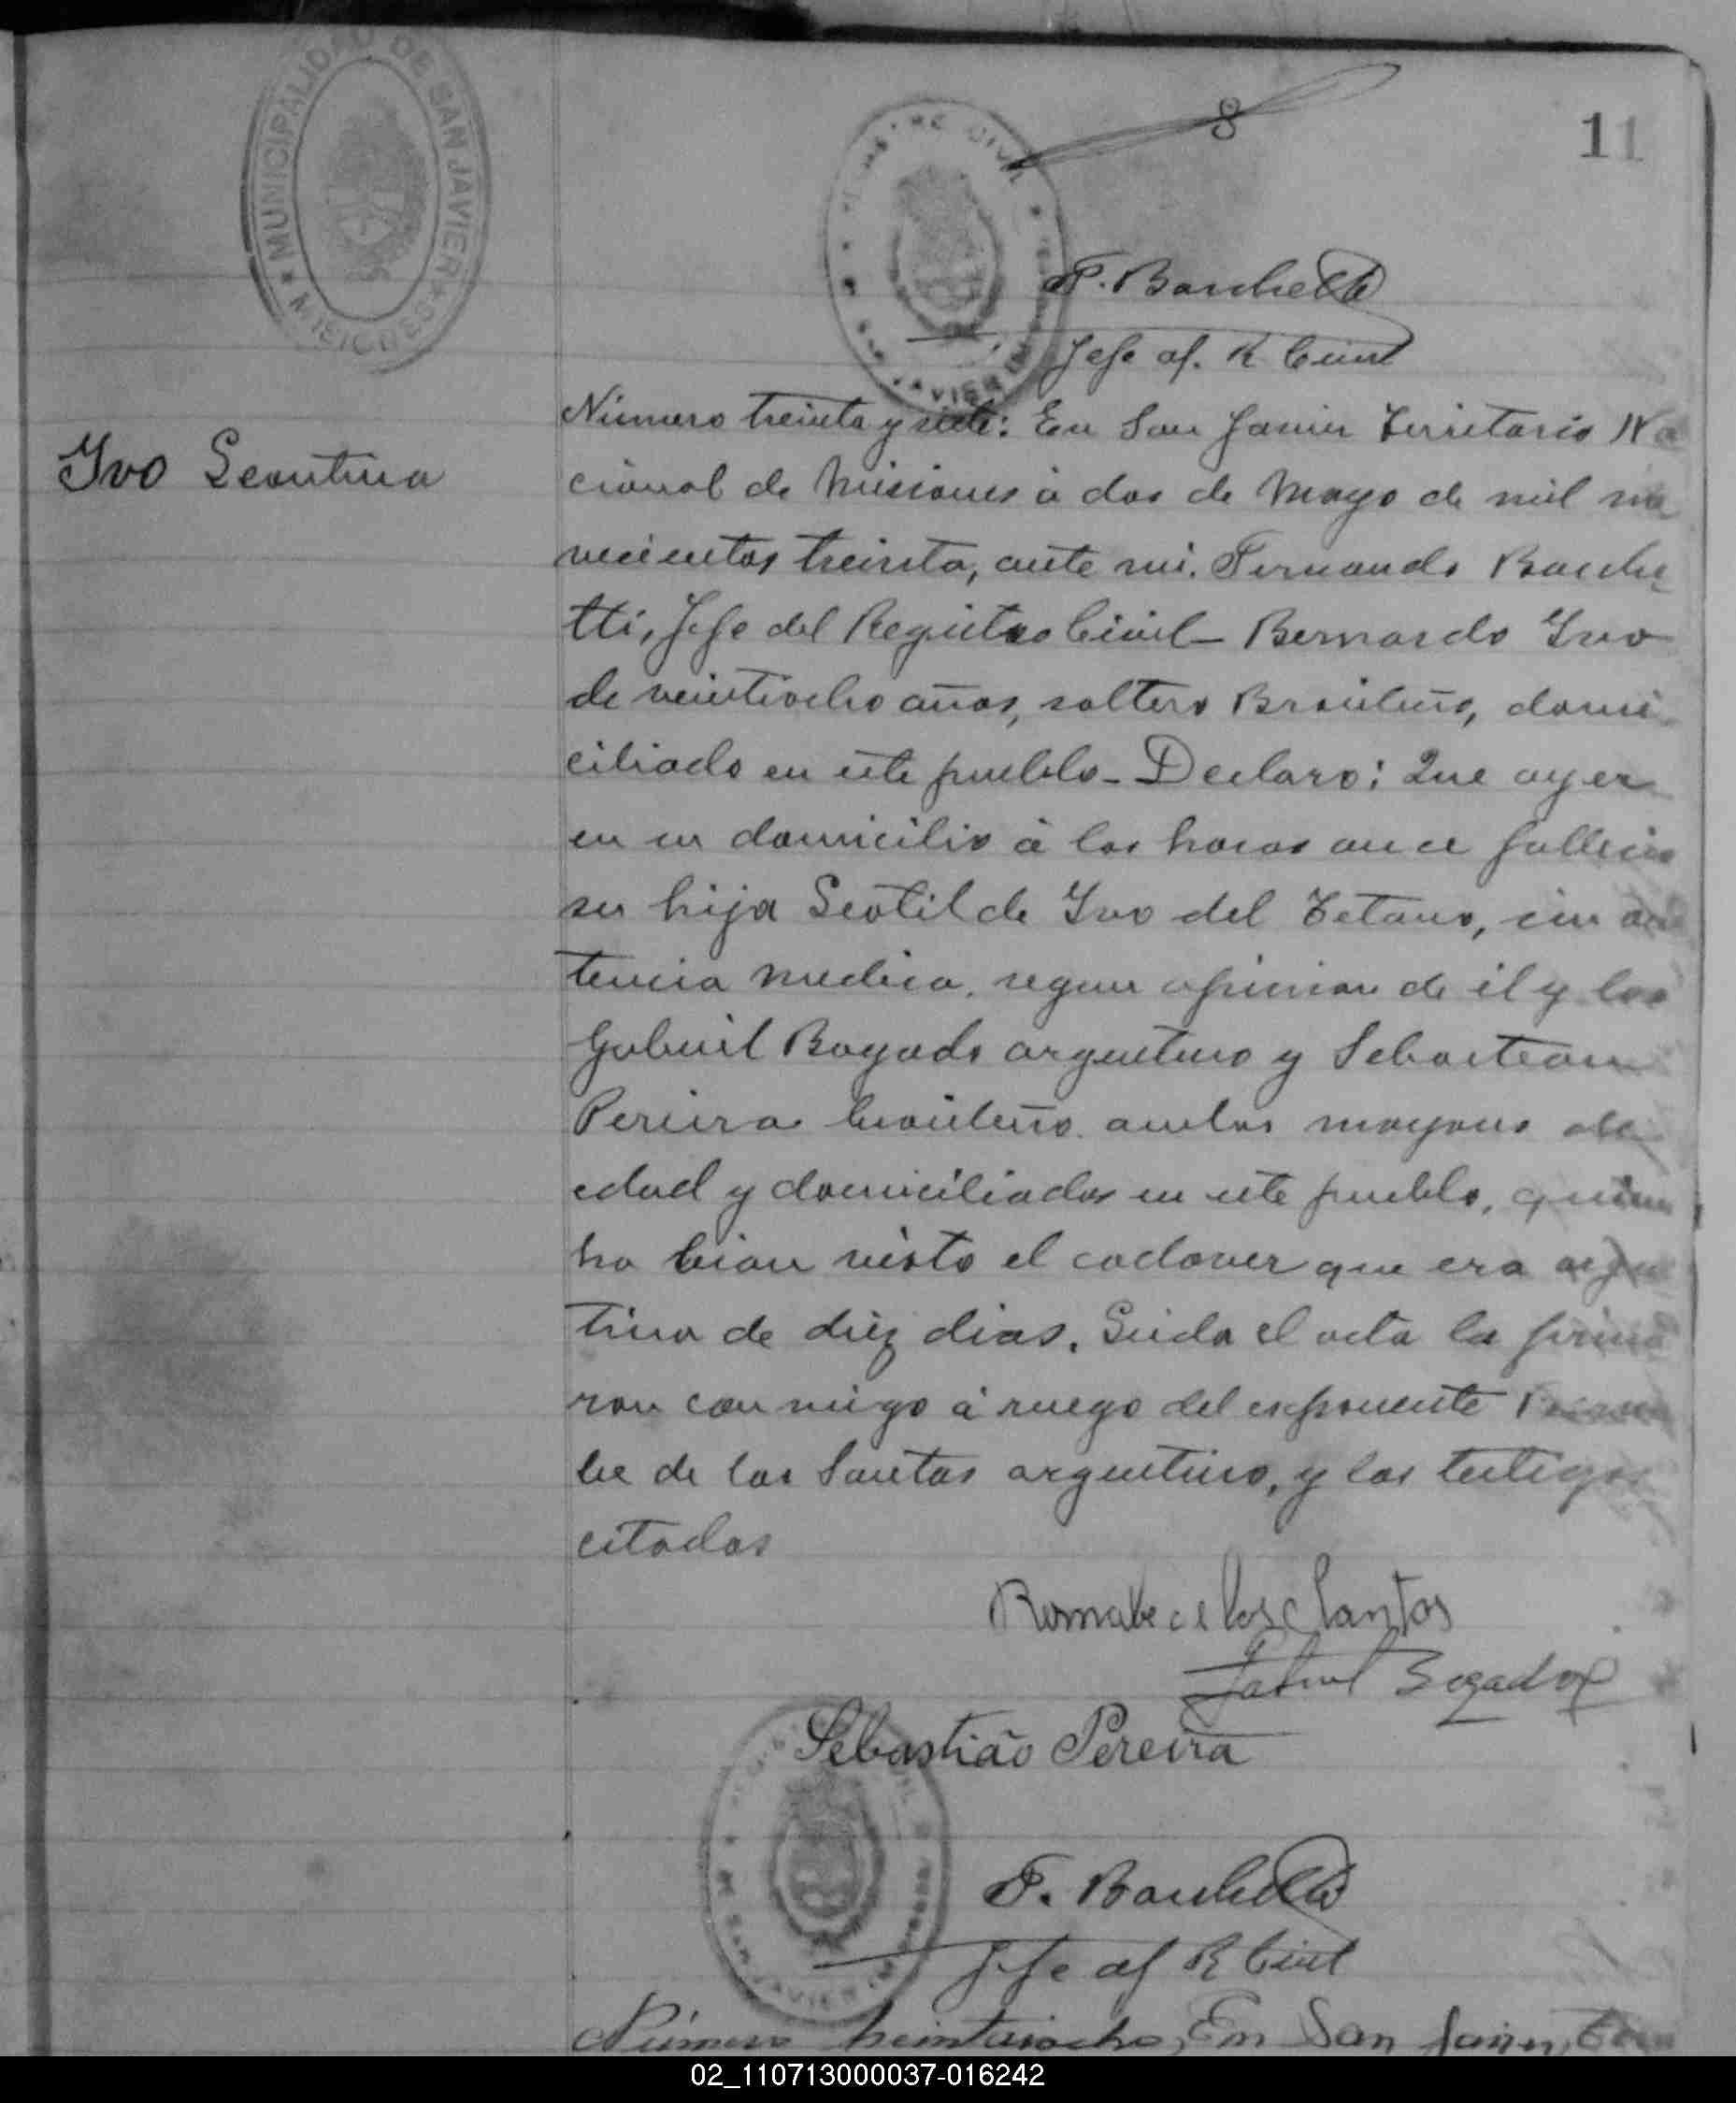 MUNICIPALIDAD DE SAN JAVIER
MISIONES
8
11
REGISTRO CIVIL
SAN JAVIER
F. Banchetti
Jefe of. R Civil
Ivo Leontina
Número treinta y siete: En San Javier Territorio Na
cional de Misiones à dos de Mayo de mil no
vecientos treinta, ante mi. Fernando Banche
tti, Jefe del Registro Civil - Bernardo Ivo
de veintiocho años, soltero Brasileño, domi
ciliado en este pueblo - Declaro: Que ayer
en su domicilio à las horas once fallecio
su hija Leotilde Ivo del Tetano, sin asis
tencia medica, segun opinion de él y los
Gabriel Bogado argentino y Sebastean
Pereira brasileño ambos mayores de
edad y domiciliados en este pueblo, quienes
ha bian visto el cadaver que era argen
tina de diez dias. Leida el acta la firma
ron con migo à ruego del exponente
be de los Santos argentino, y los testigos
citados
de los Santos
Gabriel Bogado
Sebastião Pereira
SAN JAVIER
F. Banchetti
Jefe of R Civil
Número treintaiocho, En San Javier, Terri
02_110713000037-016242